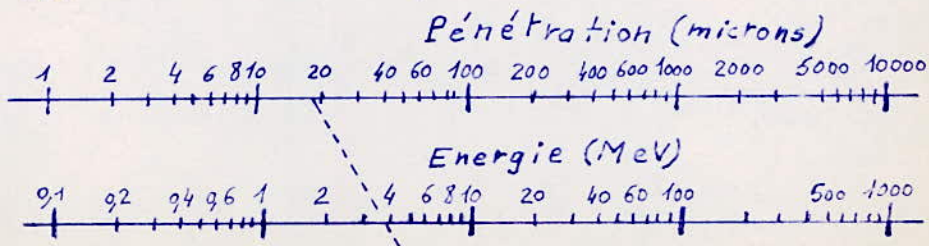 Pénétration (microns)
1 2 4 6 8 10 20 40 60 100 200 400 600 1000 2000 5000 10000
Energie (MeV)
0,1 0,2 0,4 0,6 1 2 4 6 8 10 20 40 60 100 500 1000